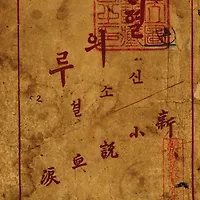 의루
신소설
新小說血淚